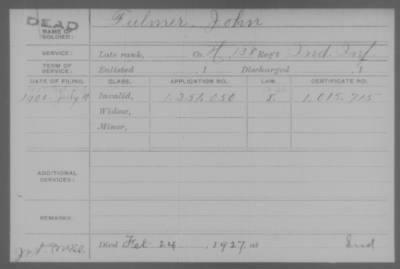 DEAD
NAME OF SOLDIER: Fulmer, John
SERVICE: Late rank, Co. H, 138 Reg't Ind. Inf.
TERM OF SERVICE: Enlisted , 1 Discharged , 1
DATE OF FILING. CLASS. APPLICATION NO. LAW. CERTIFICATE NO.
1900 July Invalid, 1.251.050 1.015.715
Widow,
Minor,
ADDITIONAL SERVICES:
REMARKS:
Died Feb 24 1927, at Ind